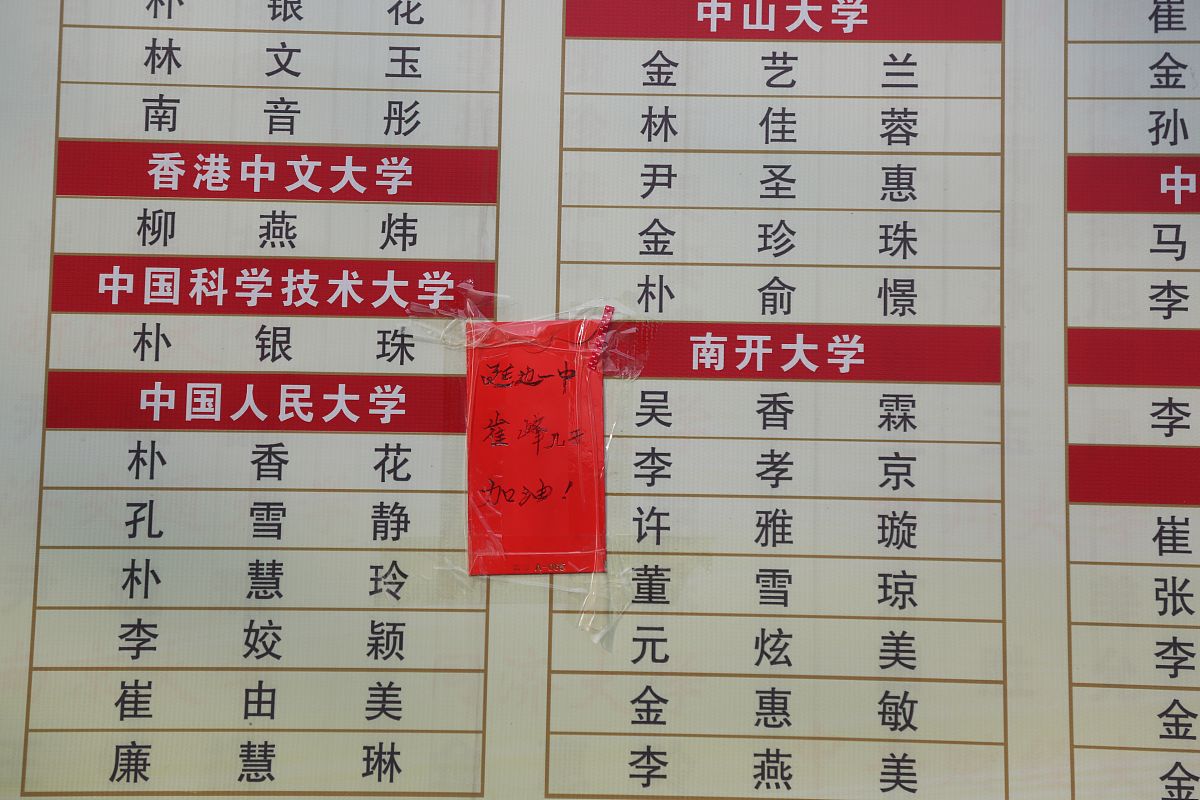 朴 银 花
林 文 玉
南 音 彤
香港中文大学
柳 燕 炜
中国科学技术大学
朴 银 珠
中国人民大学
朴 香 花
孔 雪 静
朴 慧 玲
李 姣 颖
崔 由 美
廉 慧 琳
延边一中
加油!
中山大学
金 艺 兰
林 佳 蓉
尹 圣 惠
金 珍 珠
朴 俞 憬
南开大学
吴 香 霖
李 孝 京
许 雅 璇
董 雪 琼
元 炫 美
金 惠 敏
李 燕 美
崔
金
孙
中
马
李
李
崔
张
李
金
金